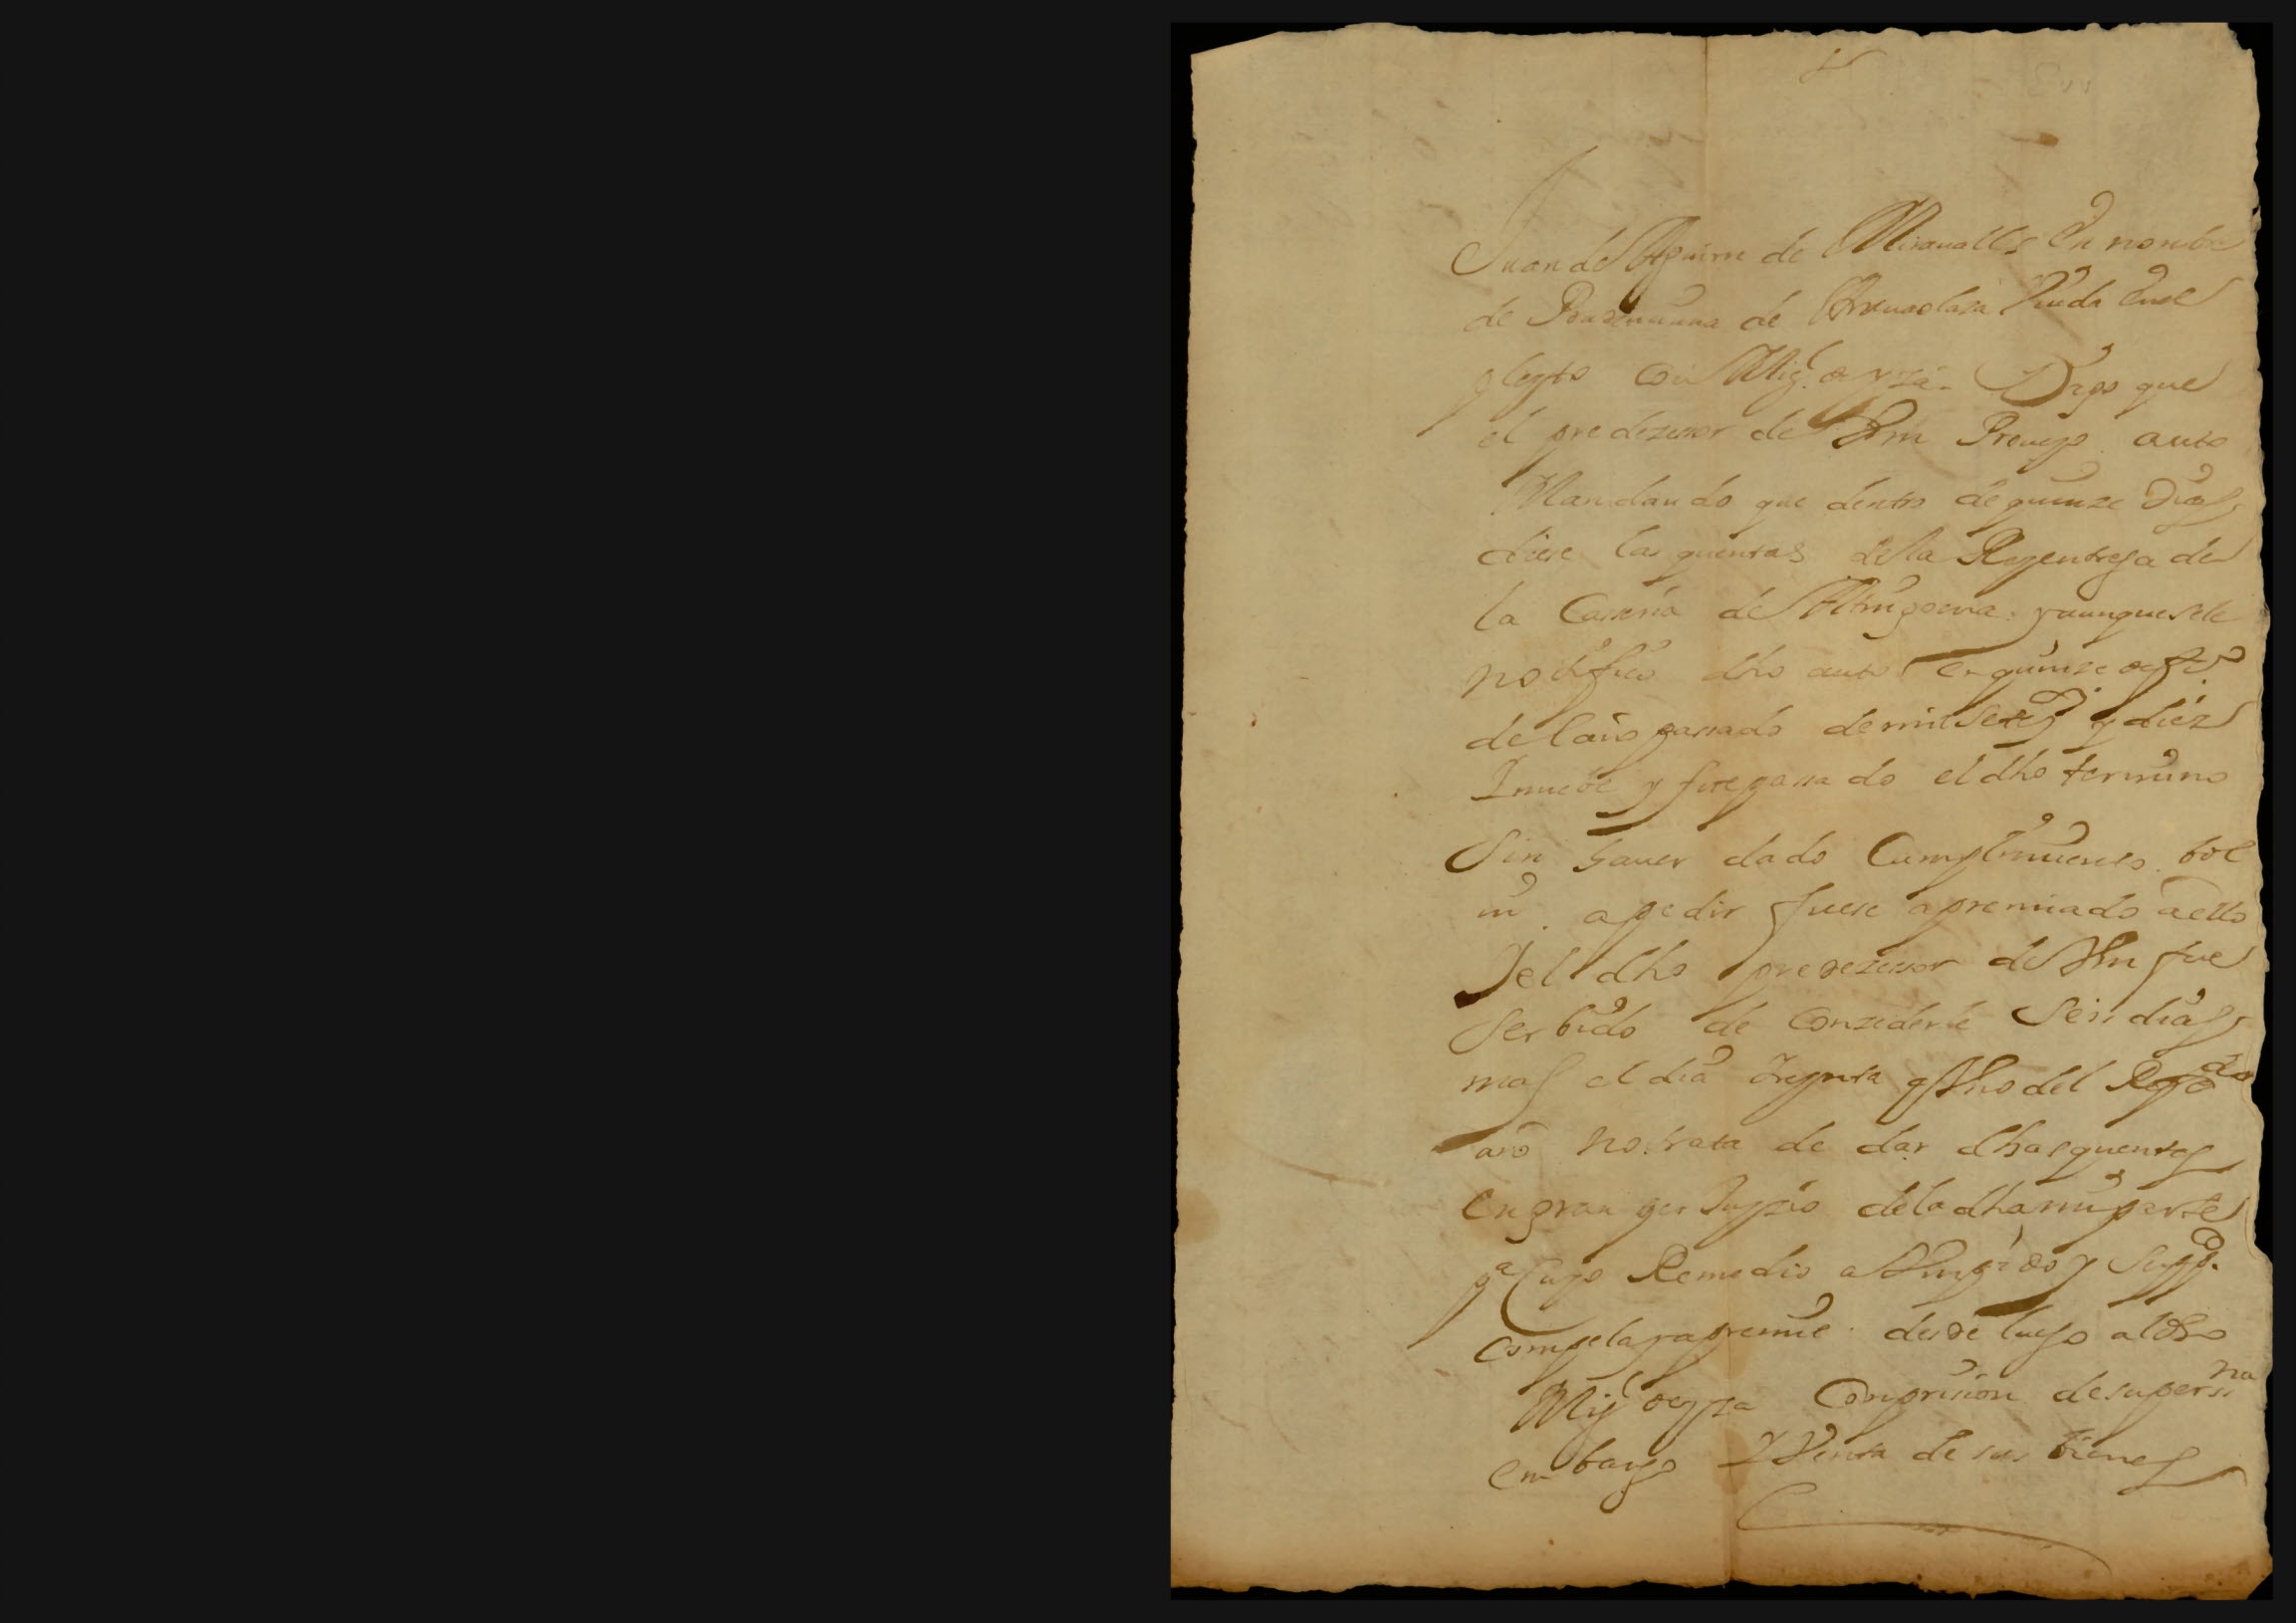 Juan de Aguirre de Miravalles En nombre
de de Viuda Enel
pleyto Con Migl de yza. Digo que
el predezesor de Vm Proueyo auto
Mandando que dentro de quinze dias
diese las quentas de la Rejentresa de
la Caseria de yaunque se le
notifico dho auto En quinze de
del año passado de mil setezs y diez
I nuebe y fue passado el dho termino
Sin hauer dado Cumplimiento. bol
ui. a pedir fuese apremiado aello
Iel dho predezesor de Vm fue
Serbido de Conzederle Seis dias
mas el dia treynta del Refdo
año no trata de dar dhas quentas
En gran perJuyzio dela dha mi parte
pa Cuyo Remedio a Vm pido y Suppco
Compela y apremie. desde luego al dho
Migl de yza Con prision de su persna
embargo Y Venta de sus bienes